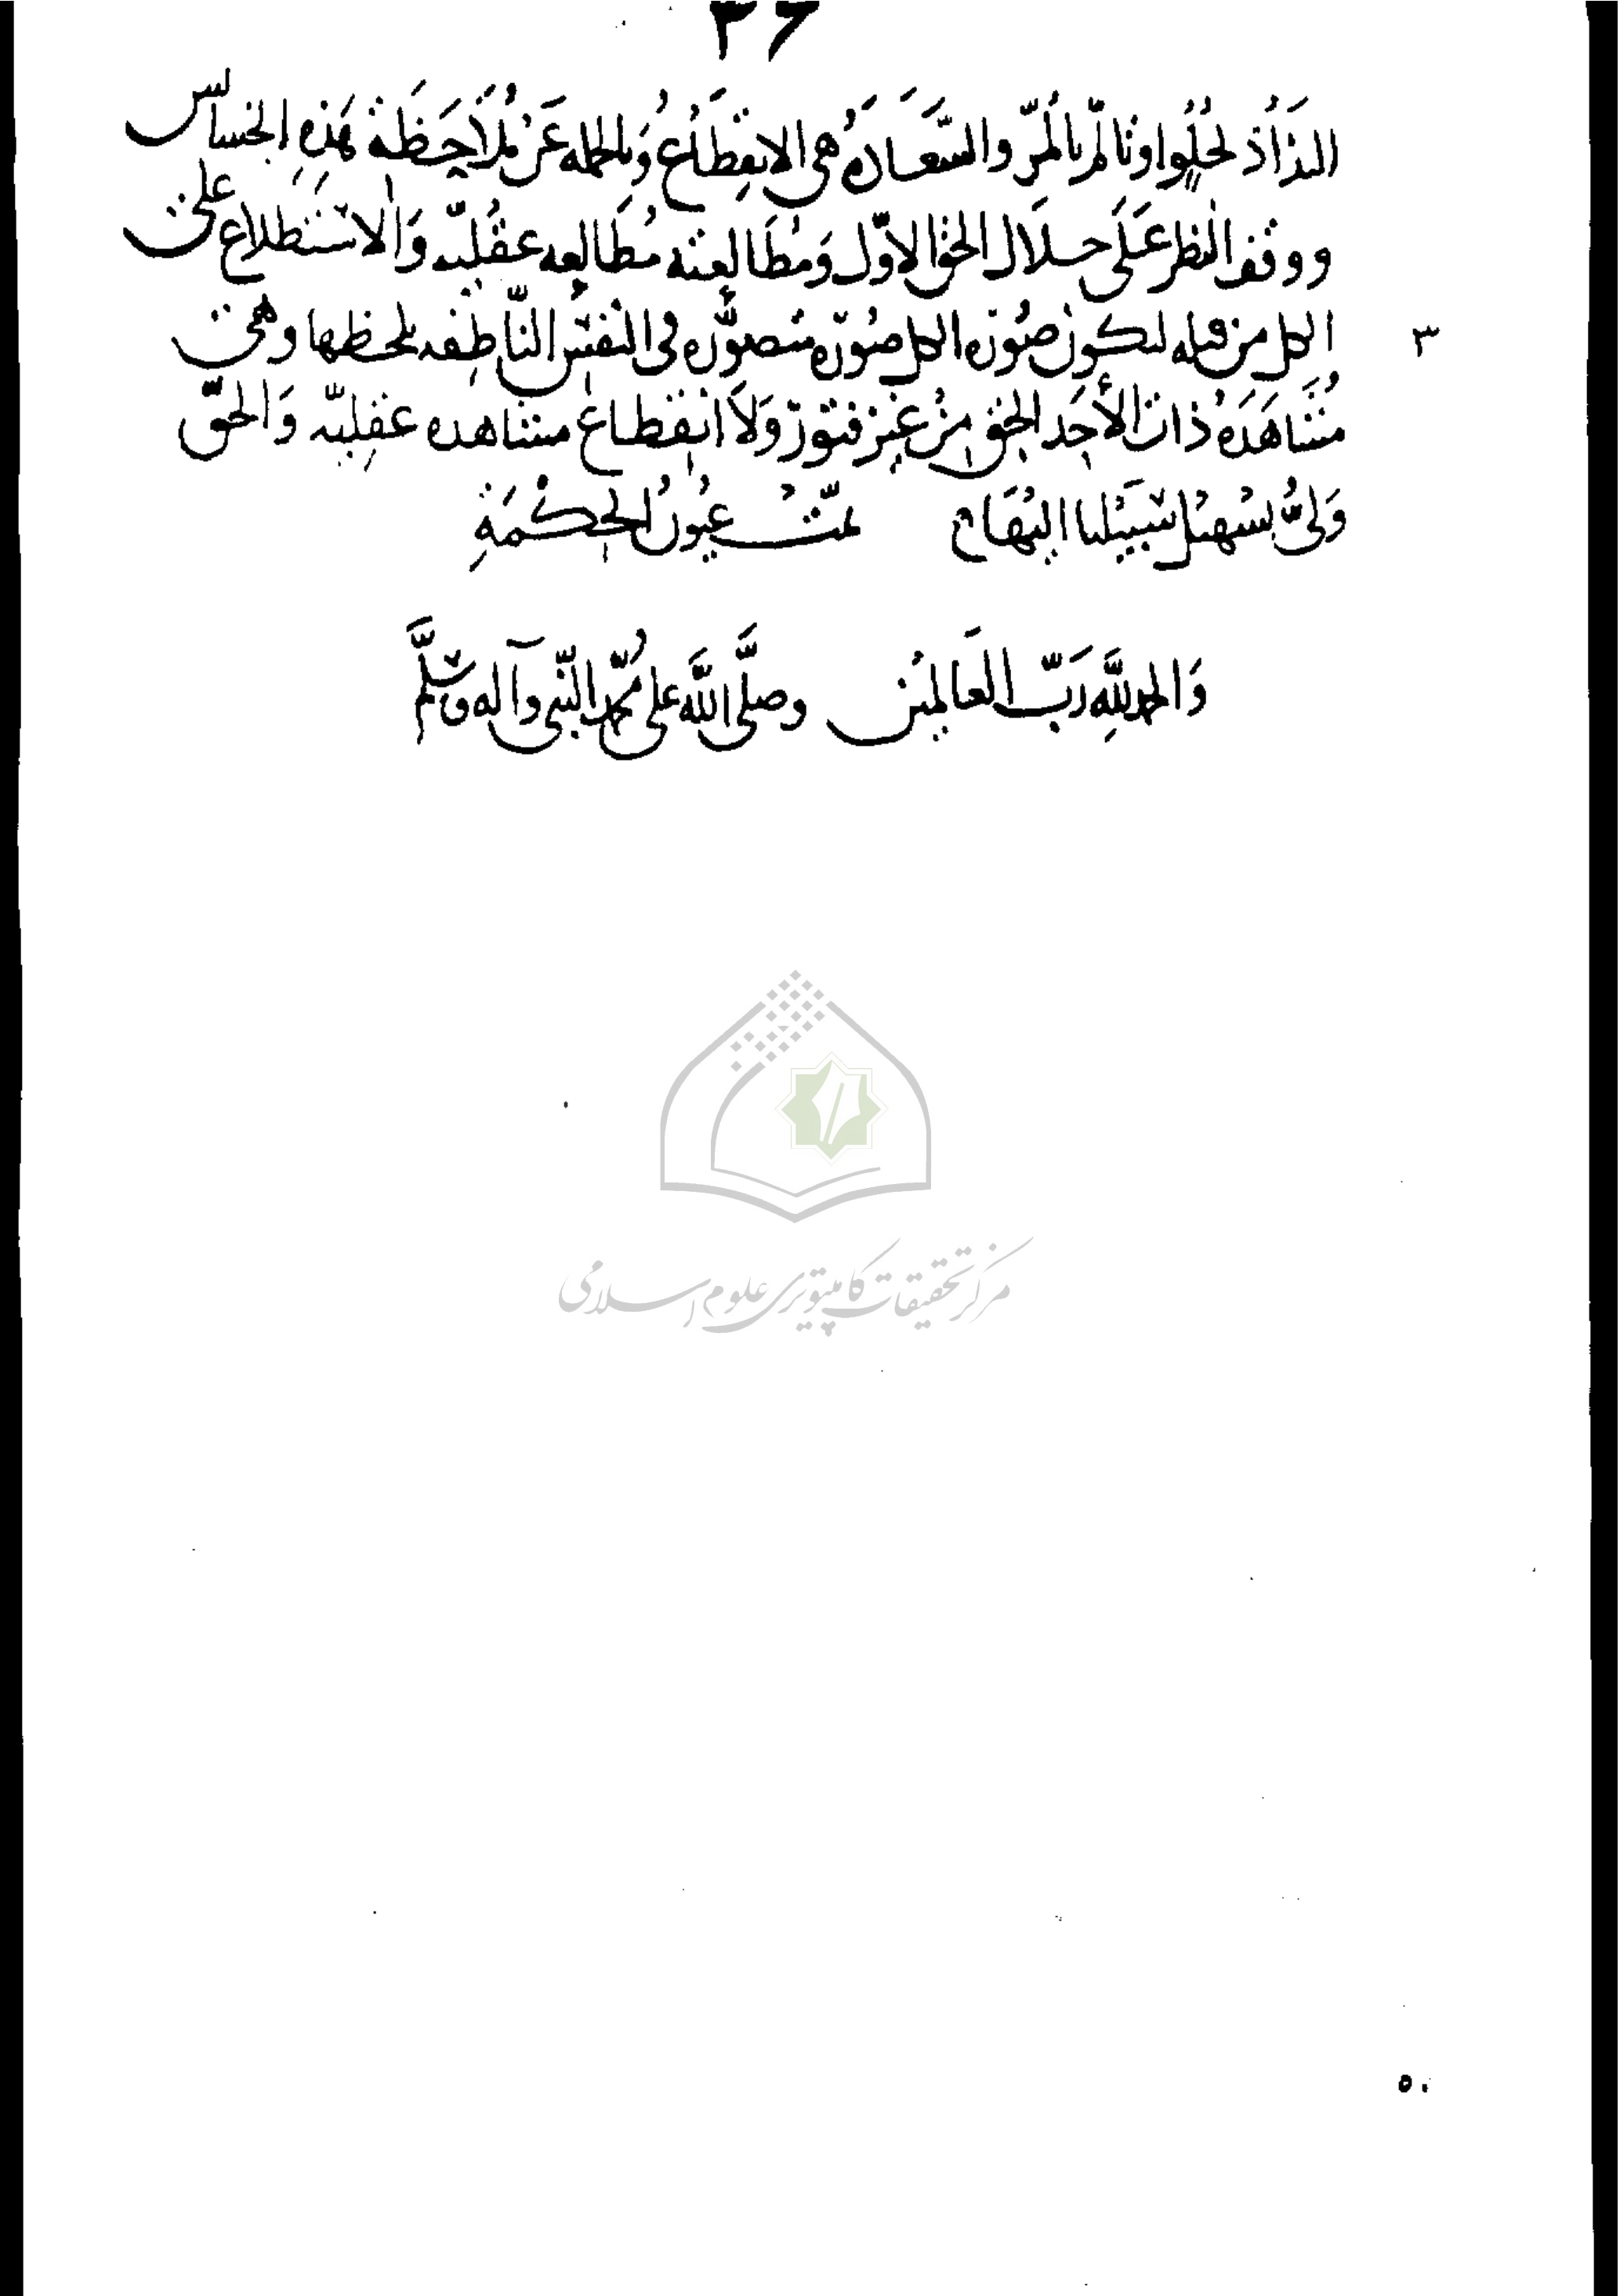 ٣٦
التذاذ لحلو او تألم بالمر والسعادة هي الانقطاع وبالجملة عن ملاحظة هذه الخسائس
ووقف النظر على جلال الحق الاول ومطالعته مطالعه عقليه والاستطلاع على
الكل من قبله لتكون صورة الكل صورة متصورة في النفس الناطقه يلحظها وهي
٣
مشاهدة ذات الأحد الحق من غير فتور ولا انقطاع مشاهده عقليه والحق
ولى تسهيل سبيلنا اليها تمت عيون الحكمة
والحمد لله رب العالمين وصلى الله على محمد النبى وآله وسلم
مرکز تحقیقات کامپیوتری علوم اسلامی
٥٠